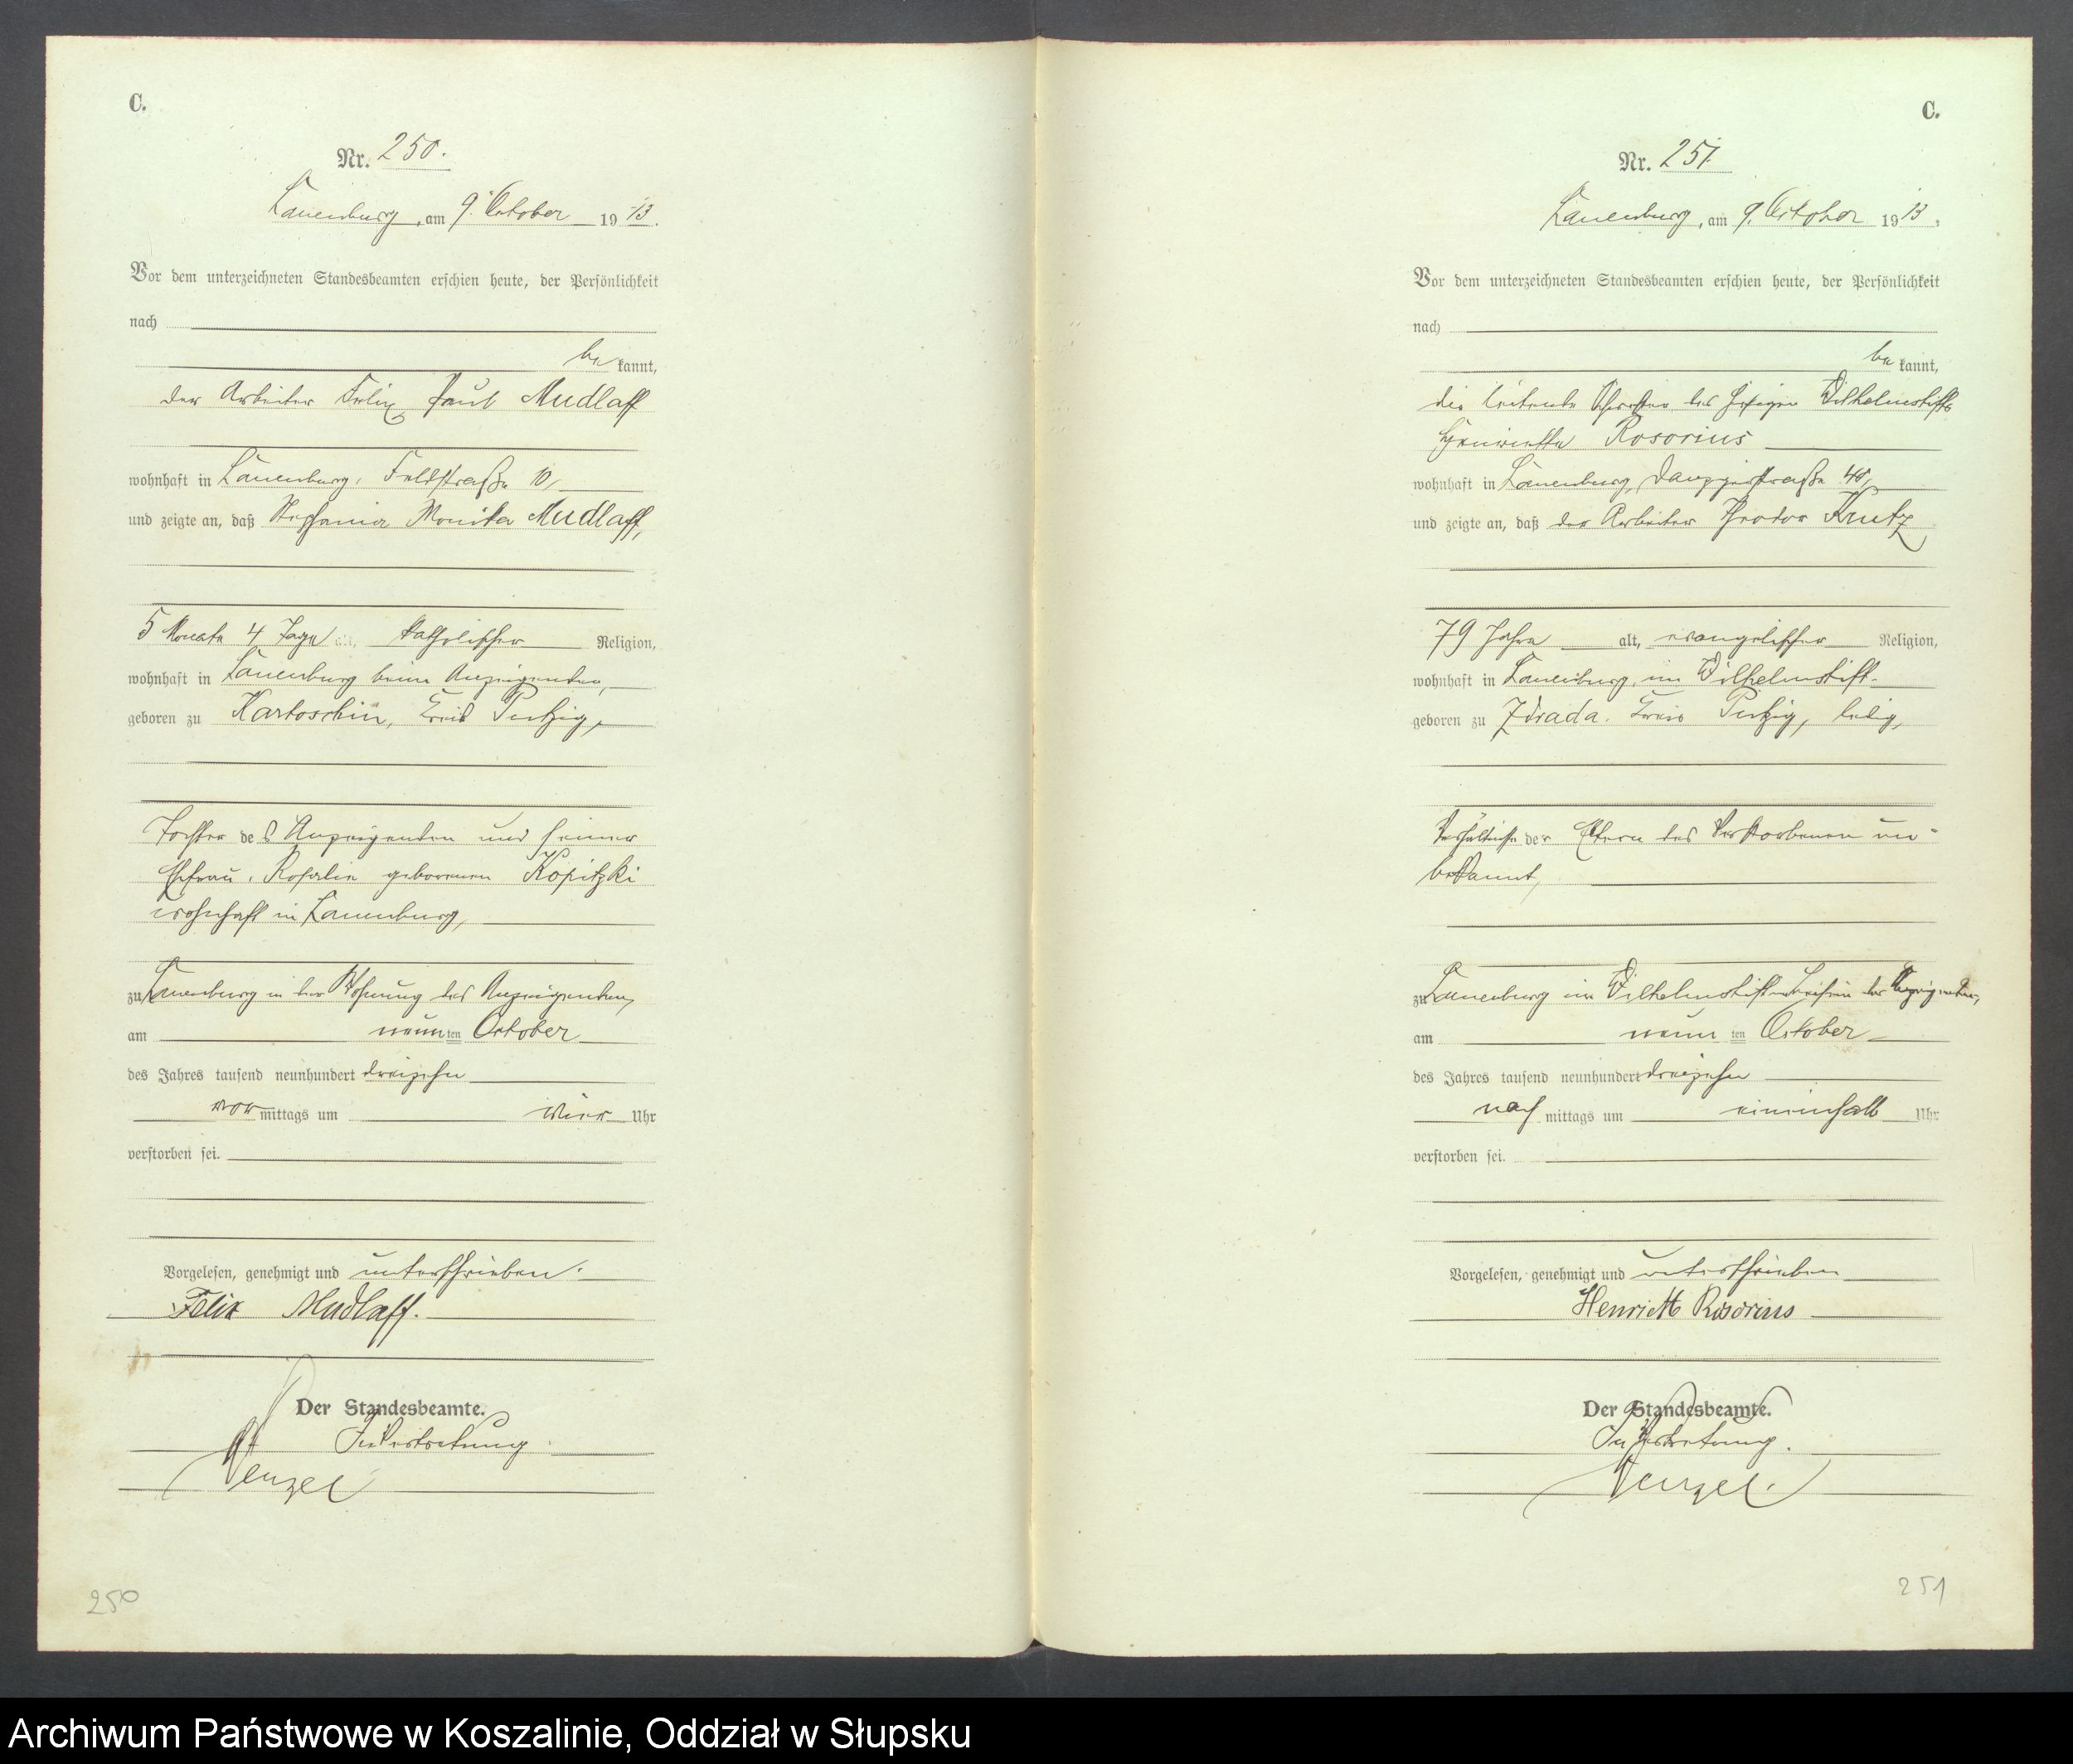 C.
Nr. 250.
Lauenburg, am 9. October 1913.
Vor dem unterzeichneten Standesbeamten erschien heute, der Persönlichkeit
nach
bekannt,
der Arbeiter Felix Paul Mudlaff
wohnhaft in Lauenburg, Feldstraße 10,
und zeigte an, daß Stephania Monika Mudlaff,
5 Monate 4 Tage alt, katholischer Religion,
wohnhaft in Lauenburg beim Anzeigenden,
geboren zu Kartoschin, Kreis Putzig,
Tochter des Anzeigenden und seiner
Ehefrau, Rosalie geborenen Kopitzki
wohnhaft in Lauenburg,
zu Lauenburg in der Wohnung des Anzeigenden,
am neunten October
des Jahres tausend neunhundert dreizehn
vormittags um vier Uhr
verstorben sei.
Vorgelesen, genehmigt und unterschrieben.
Felix Mudlaff.
Der Standesbeamte.
In Vertretung
Wenzel
250
C.
Nr. 251.
Lauenburg, am 9. October 1913.
Vor dem unterzeichneten Standesbeamten erschien heute, der Persönlichkeit
nach
bekannt,
die leitende Schwester des hiesigen Wilhelmstifts
Henriette Rosorius
wohnhaft in Lauenburg, Danzigerstraße 40,
und zeigte an, daß der Arbeiter Theodor Krutz
79 Jahre alt, evangelischer Religion,
wohnhaft in Lauenburg, im Wilhelmstift.
geboren zu Zdrada, Kreis Putzig, ledig,
Verhältnisse der Eltern des Verstorbenen un-
bekannt,
zu Lauenburg im Wilhelmstift in Beisein der Anzeigenden,
am neunten October
des Jahres tausend neunhundert dreizehn
nachmittags um eineinhalb Uhr
verstorben sei.
Vorgelesen, genehmigt und unterschrieben
Henriette Rosorius
Der Standesbeamte.
In Vertretung.
Wenzel.
251
Archiwum Państwowe w Koszalinie, Oddział w Słupsku